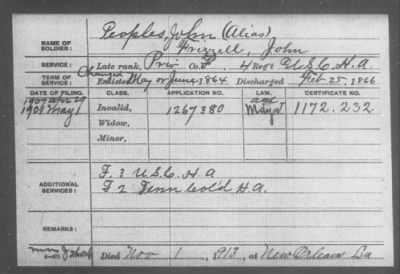 Peoples, John (Alias)
NAME OF SOLDIER: Frizzell, John
SERVICE: Late rank, Priv Co. F, 4 Regt U.S.C.H.A.
TERM OF SERVICE: Enlisted May or June, 1864 Discharged Feb 25, 1866
DATE OF FILING. CLASS. APPLICATION NO. LAW. CERTIFICATE NO.
1907 Apr 29 age
1908 May 1 Invalid, 1267380 1172.232
Widow,
Minor,
ADDITIONAL SERVICES: F. 3 U.S.C.H.A
F 2 Tenn Col'd H.A.
REMARKS:
Died Nov 1, 1913, at New Orleans La